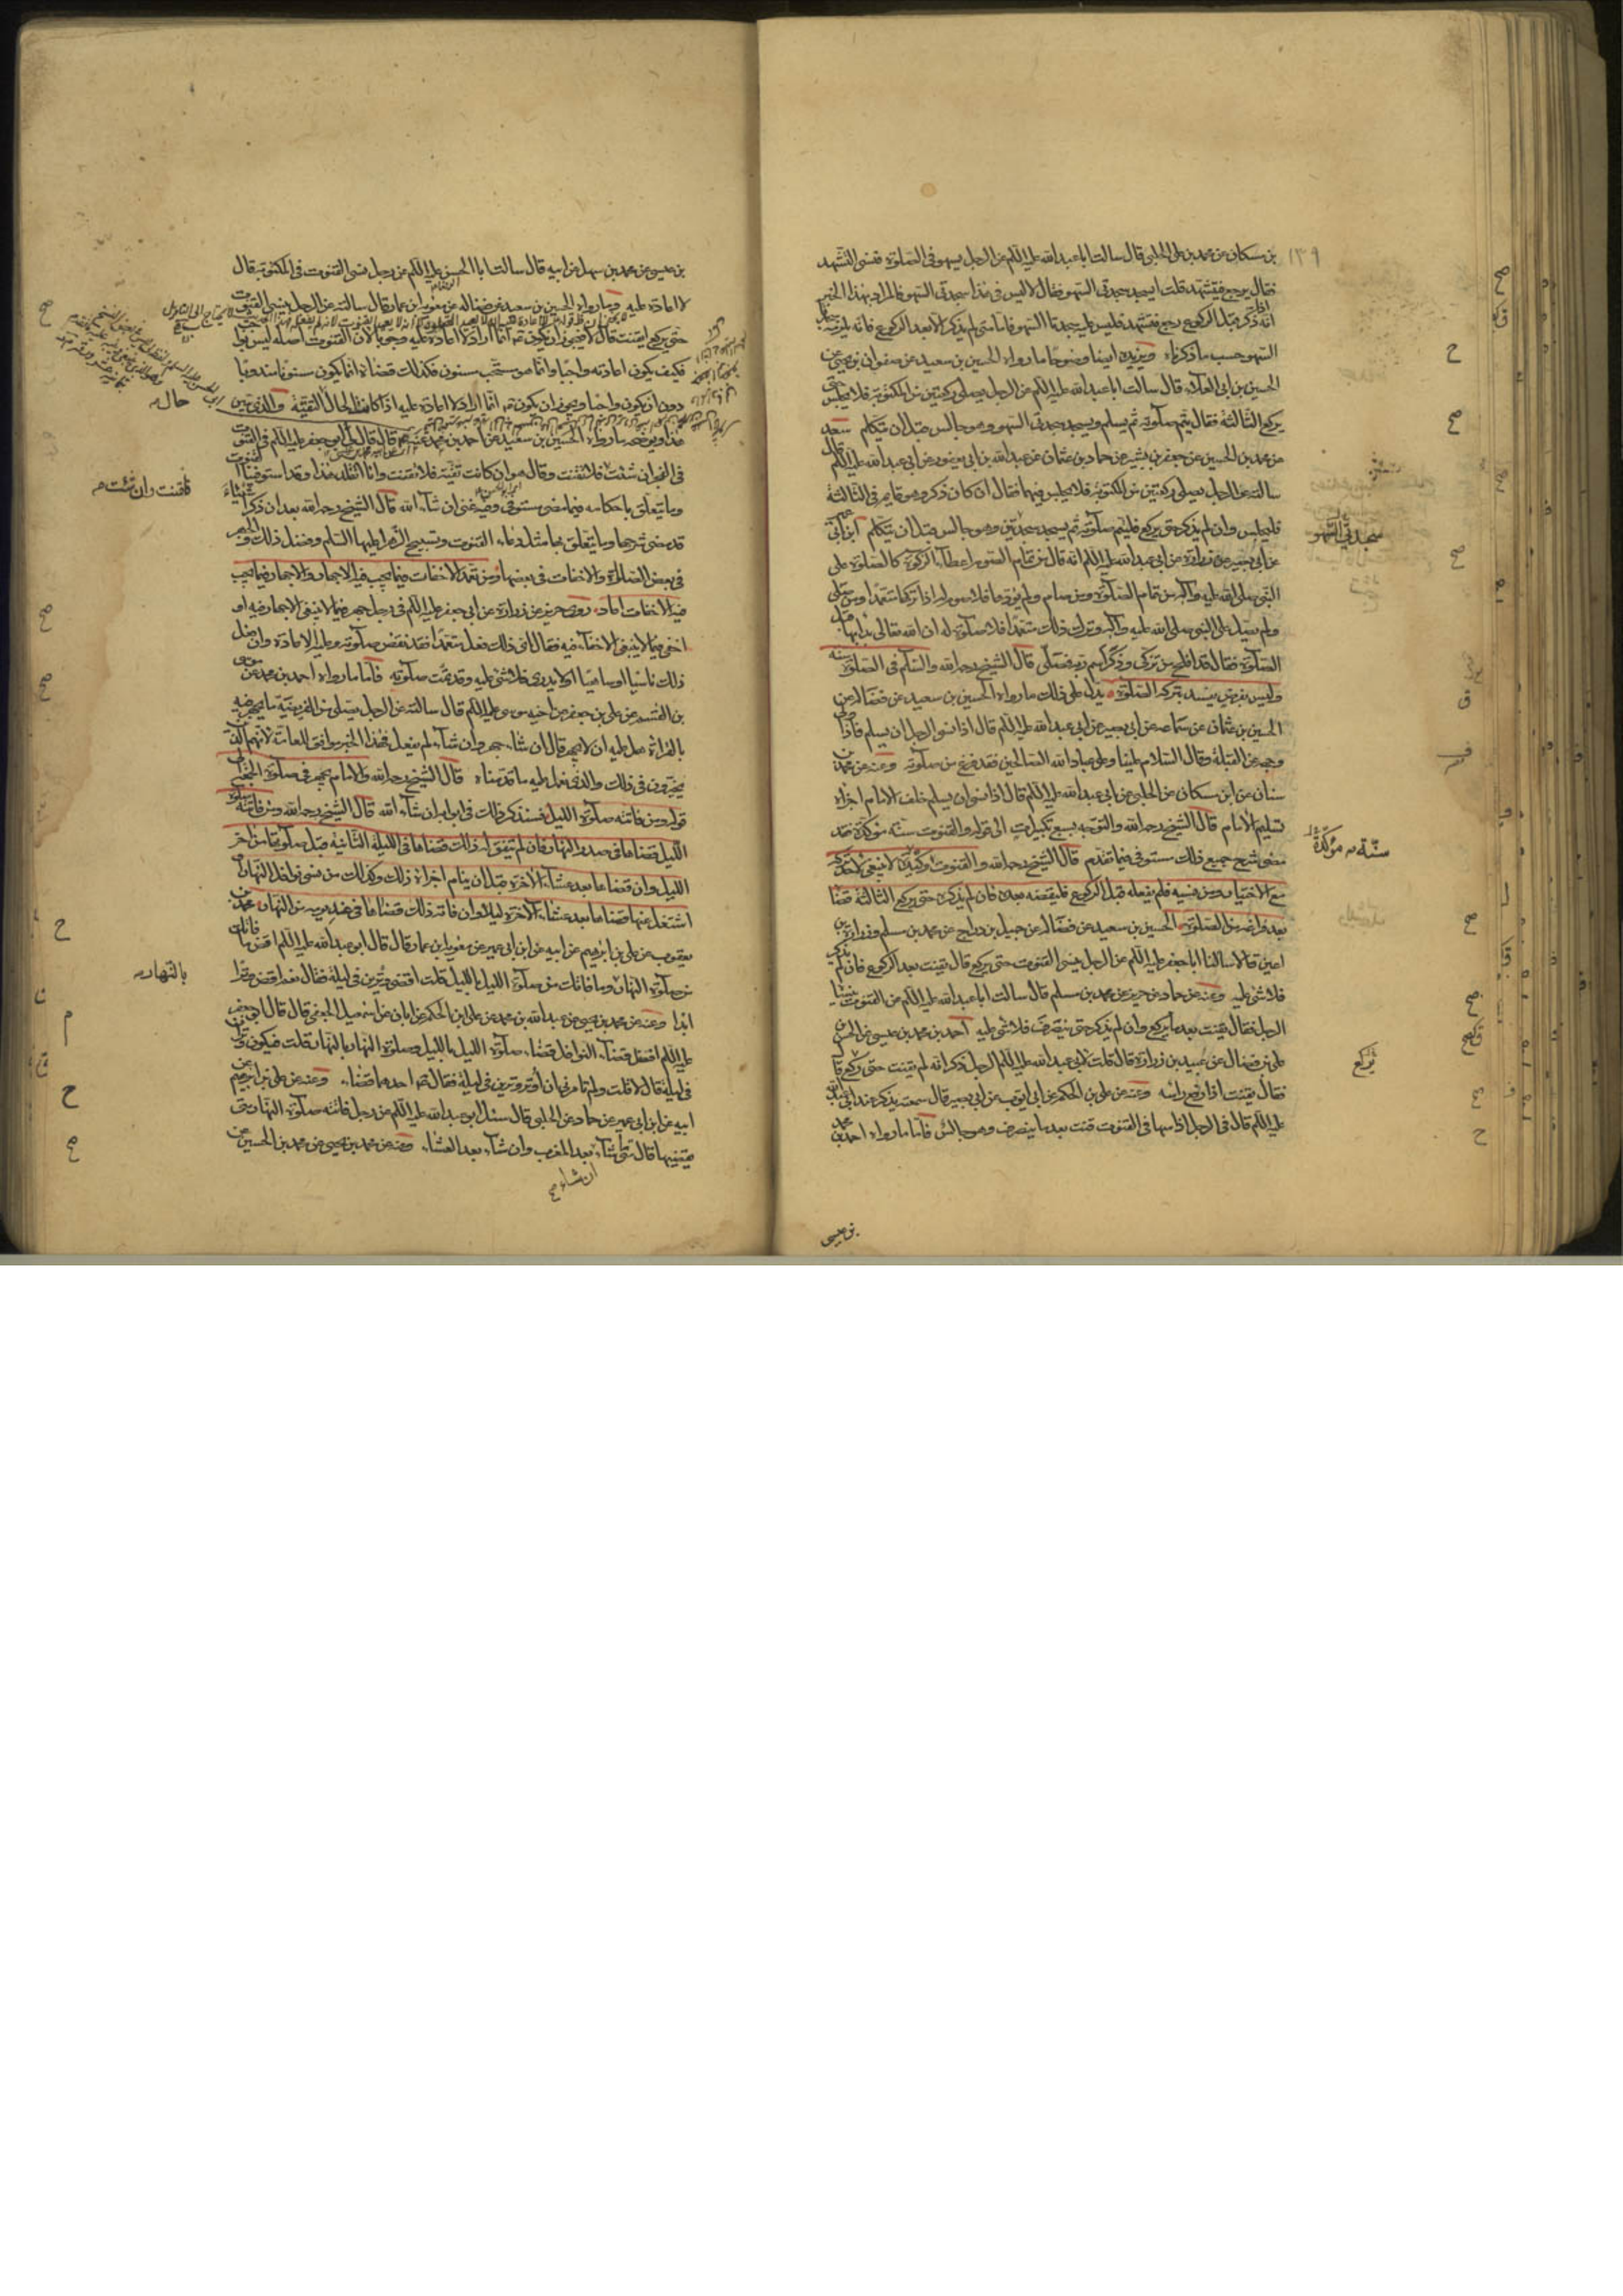 ١٣٩
بن مسكان عن محمد بن علي الحلبي قال سالت ابا عبد الله عليه السلم عن الرجل يسهو في الصلوة فنسي التشهد
فقال يرجع فيتشهد قلت ايسجد سجدتي السهو فقال لا ليس في هذا سجدتي السهو فالمراد بهذا الخبر
انه اذا ذكر قبل الركوع رجع فتشهد فليس عليه سجدتا السهو فاما متى لم يذكر الا بعد الركوع فانه يلزمه
السهو حسب ما ذكرناه ويزيده ايضا وضوحا ما رواه الحسين بن سعيد عن صفوان بن يحيى عن
الحسين بن ابي العلاء قال سالت ابا عبد الله عليه السلم عن الرجل يصلي ركعتين من المكتوبة فلا يجلس حتى
يركع الثالثة فقال يتم صلوته ثم يسلم ويسجد سجدتي السهو وهو جالس قبل ان يتكلم سعد
عن محمد بن الحسين عن جعفر بن بشير عن حماد بن عثمان عن عبد الله بن ابي يعفور عن ابي عبد الله عليه السلم قال
سالته عن الرجل يصلي ركعتين من المكتوبة فلا يجلس فيهما فقال ان كان ذكر وهو قايم في الثالثة
فليجلس وان لم يذكر حتى يركع فليتم صلوته ثم يسجد سجدتين وهو جالس قبل ان يتكلم ابن ابي
عن ابي بصير عن زرارة عن ابي عبد الله عليه السلم انه قال من تمام الصوم اعطاء الزكوة كالصلوة على
النبي صلى الله عليه وآله من تمام الصلوة ومن صام ولم يؤدها فلا صوم له اذا تركها متعمدا ومن صلى
ولم يصل على النبي صلى الله عليه وآله وترك ذلك متعمدا فلا صلوة له ان الله تعالى بدا بها قبل
الصلوة فقال قد افلح من تزكى وذكر اسم ربه فصلى قال الشيخ رحمه الله والسلم في الصلوة سنة
وليس بفرض يفسد بتركه الصلوة يدل على ذلك ما رواه الحسين بن سعيد عن فضالة عن
الحسين بن عثمان عن سماعة عن ابي بصير عن ابي عبد الله عليه السلم قال اذا نسي الرجل ان يسلم فاذا ولى
وجهه عن القبلة وقال السلام علينا وعلى عباد الله الصالحين فقد فرغ من صلوته وعنه عن محمد بن
سنان عن ابن مسكان عن الحلبي عن ابي عبد الله عليه السلم قال اذا نسي ان يسلم خلف الامام اجزاه
تسليم الامام قال الشيخ رحمه الله والتوجه بسبع تكبيرات الى قوله والقنوت سنة مؤكدة فقد
مضى شرح جميع ذلك مستوفى فيما تقدم قال الشيخ رحمه الله والقنوت وكيدة لا ينبغي لاحد تركه
مع الاختيار ومن نسيه فلم يفعله قبل الركوع فليقضه بعده فان لم يذكره حتى يركع الثالثة قضاه
بعد فراغه من الصلوة الحسين بن سعيد عن فضالة عن جميل بن دراج عن محمد بن مسلم وزرارة بن
اعين قالا سالنا ابا جعفر عليه السلم عن الرجل ينسى القنوت حتى يركع قال يقنت بعد الركوع فان لم يذكر
فلا شيء عليه وعنه عن حماد عن حريز عن محمد بن مسلم قال سالت ابا عبد الله عليه السلم عن القنوت ينساه
الرجل فقال يقنت بعد ما يركع وان لم يذكر حتى ينصرف فلا شيء عليه احمد بن محمد بن عيسى عن الحسن
علي بن فضال عن عبيد بن زرارة قال قلت لابي عبد الله عليه السلم الرجل ذكر انه لم يقنت حتى ركع قال
فقال يقنت اذا رفع راسه وعنه عن علي بن الحكم عن ابي ايوب عن ابي بصير قال سمعته يذكر عند ابي عبد الله
عليه السلم قال في الرجل اذا سها في القنوت قنت بعد ما ينصرف وهو جالس فاما ما رواه احمد بن محمد
بن عيسى
سجدتي السهو
سنة مؤكدة
يركع
بن عيسى عن محمد بن سهل عن ابيه قال سالت ابا الحسن عليه السلم عن رجل نسي القنوت في المكتوبة قال
لا اعادة عليه وما رواه الحسين بن سعيد عن فضالة عن معوية بن عمار قال سالته عن الرجل ينسى القنوت
حتى يركع ايقنت قال لا فيجوز ان يكون انما اراد لا اعادة عليه وجوبا لان القنوت اصله ليس بواجب
فكيف يكون اعادته واجبا وانما هو مستحب مسنون فكذلك قضاه انما يكون مسنونا مندوبا
دون ان يكون واجبا ويجوز ان يكون انما اراد لا اعادة عليه اذا كان الحال التقية والذي يبين
هذا ويوضحه ما رواه الحسين بن سعيد عن احمد بن محمد قال قال لي ابو جعفر عليه السلم في القنوت
في الفجر ان شئت فلا تقنت وقال هو ان كانت تقية فلا تقنت وانا اتقلد هذا وقد استوفينا القنوت
وما يتعلق باحكامه فيما مضى مستوفى وفيه غنى ان شاء الله قال الشيخ رحمه الله بعد ان ذكر اشياء
قد مضى شرحها وما يتعلق بها مثل دعاء القنوت وتسبيح الزهرا عليها السلم وفضل ذلك والجهر
في بعض الصلوة والاخفات في بعضها ومن تعمد الاخفات فيما يجب فيه الاجهار والاجهار فيما يجب
فيه الاخفات اعاد روى حريز عن زرارة عن ابي جعفر عليه السلم في رجل جهر فيما لا ينبغي الاجهار فيه او
اخفى فيما لا ينبغي الاخفاء فيه فقال اي ذلك فعل متعمدا فقد نقض صلوته وعليه الاعادة وان فعل
ذلك ناسيا او ساهيا او لا يدري فلا شيء عليه وقد تمت صلوته فاما ما رواه احمد بن محمد عن موسى
بن القسم عن علي بن جعفر عن اخيه موسى عليه السلم قال سالته عن الرجل يصلي من الفريضة ما يجهر فيه
بالقراءة هل عليه ان لا يجهر قال ان شاء جهر وان شاء لم يفعل فهذا الخبر موافق للعامة لانهم الذين
يخيرون في ذلك والذي نعمل عليه ما قدمناه قال الشيخ رحمه الله والامام يجهر في صلوة الجمعة الى
قوله ومن فاتته صلوة الليل فسنذكر ذلك في ابوابه ان شاء الله قال الشيخ رحمه الله ومن فاتته صلوة
الليل قضاها في صدر النهار فان لم يتفق له ذلك قضاها في الليلة الثانية قبل صلوتها من اخر
الليل وان قضاها بعد عشاء الاخرة قبل ان ينام اجزاه ذلك وكذلك من نسي نوافل النهار او
اشتغل عنها قضاها بعد عشاء الاخرة ليلا وان فاته ذلك قضاها في غد يومه من النهار محمد بن
يعقوب عن علي بن ابرهيم عن ابيه عن ابن ابي عمير عن معوية بن عمار قال قال ابو عبد الله عليه السلم اقض ما فاتك
من صلوة النهار وما فاتك من صلوة الليل بالليل قلت اقضي وترين في ليلة فقال نعم اقض وترا
ابدا وعنه عن محمد بن يحيى عن عبد الله بن محمد عن علي بن الحكم عن ابان عن اسمعيل الجعفي قال قال ابو جعفر
عليه السلم افضل قضاء النوافل قضاء صلوة الليل بالليل وصلوة النهار بالنهار قلت فيكون وتران
في ليلة قال لا قلت ولم تامرني ان اوتر وترين في ليلة فقال احدهما قضاء وعنه عن علي بن ابرهيم عن
ابيه عن ابن ابي عمير عن حماد عن الحلبي قال سئل ابو عبد الله عليه السلم عن رجل فاتته صلوة النهار متى
يقضيها قال متى شاء بعد المغرب وان شاء بعد العشاء وعنه عن محمد بن يحيى عن محمد بن الحسين عن
ان شاء
حال
فاقنت وان شئت
بالنهار